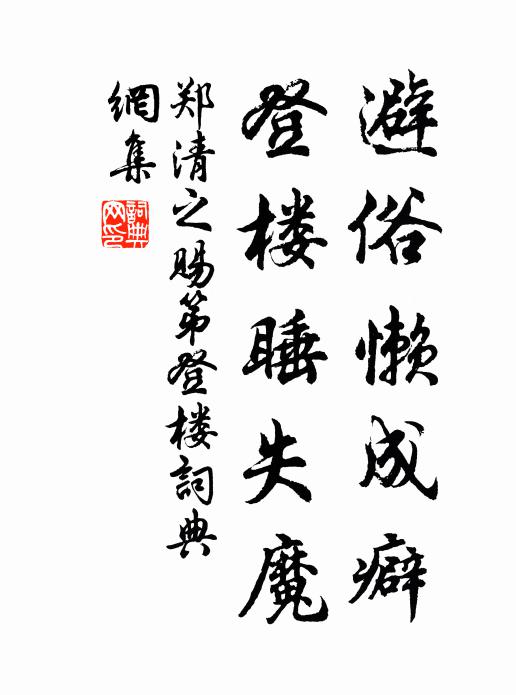 避俗懒成癖
登楼睡失魔
郑清之赐第登楼詞典
網集
詞典网印